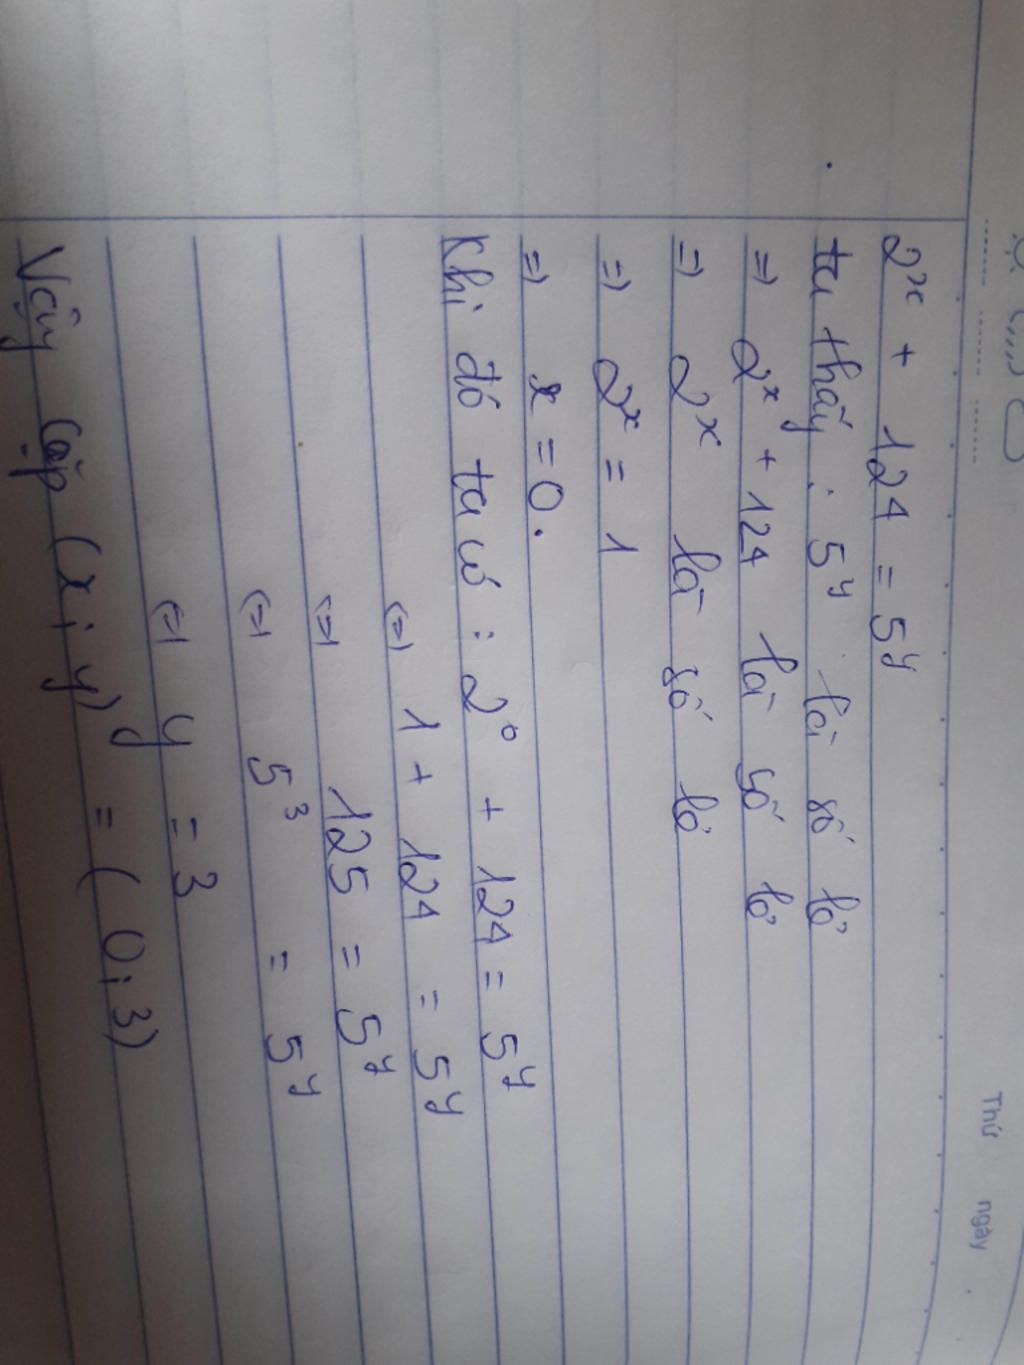 Thứ
ngày
2^x + 124 = 5^y
ta thấy : 5^y là số lẻ
=> 2^x + 124 là số lẻ
=> 2^x là số lẻ
=> 2^x = 1
=> x = 0.
Khi đó ta có : 2^0 + 124 = 5^y
(=) 1 + 124 = 5^y
(=) 125 = 5^y
(=) 5^3 = 5^y
(=) y = 3
Vậy cặp (x ; y) = ( 0 ; 3)